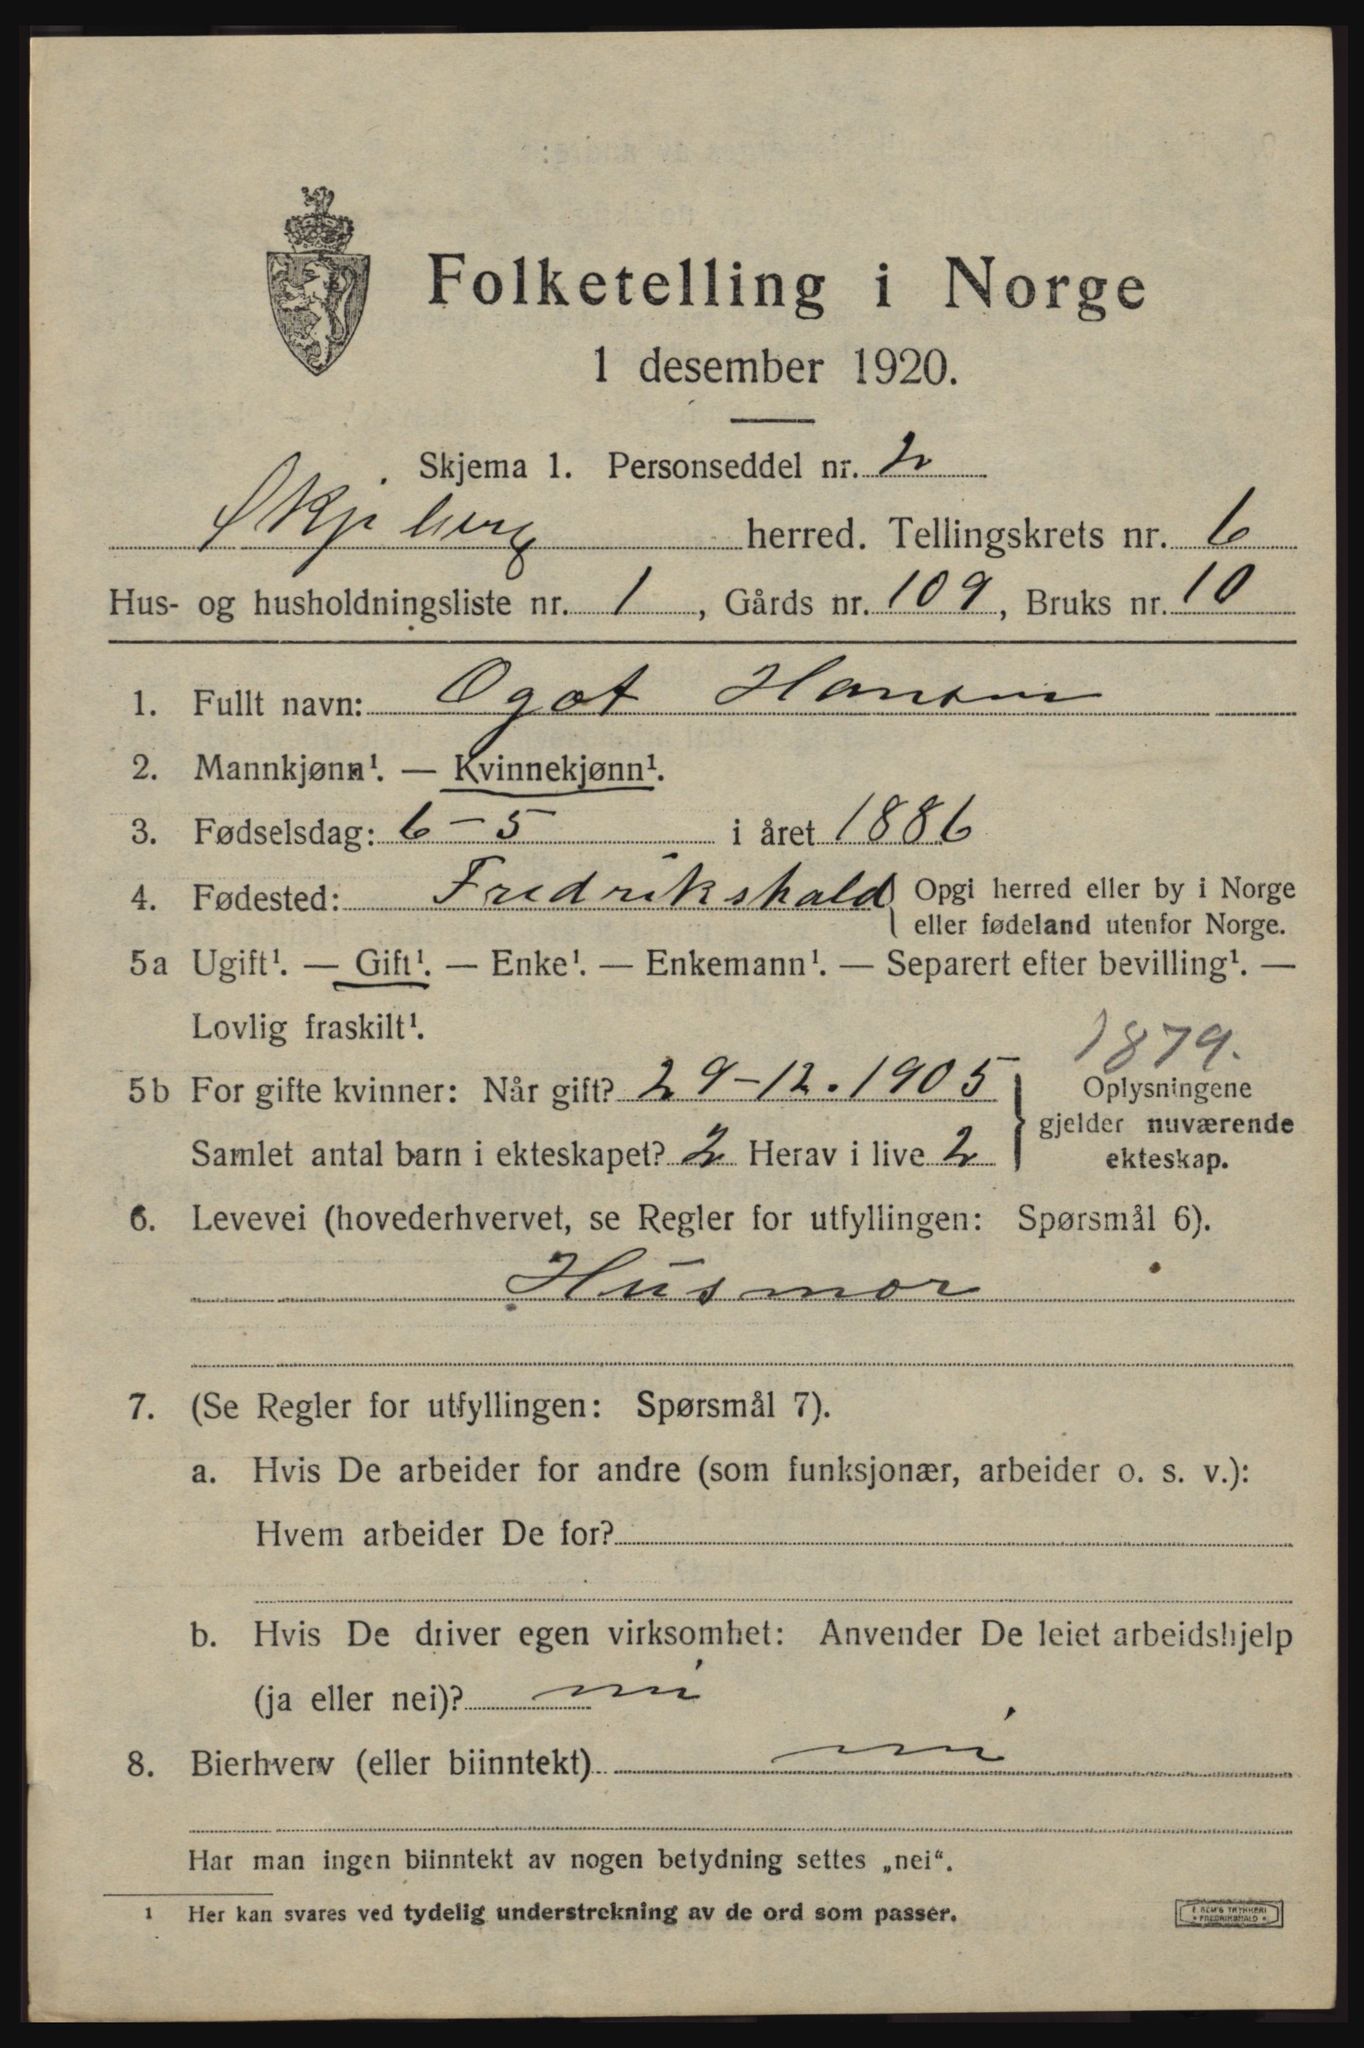 Folketelling i Norge
1 desember 1920.
Skjema 1. Personseddel nr. 2
Skjeberg herred. Tellingskrets nr. 6
Hus- og husholdningsliste nr. 1, Gårds nr. 109, Bruks nr. 10
1. Fullt navn: Ogot Hansen
2. Mannkjønn¹. — Kvinnekjønn¹.
3. Fødselsdag: 6-5 i året 1886
4. Fødested: Fredrikshald { Opgi herred eller by i Norge
eller fødeland utenfor Norge.
5a Ugift¹. — Gift¹. — Enke¹. — Enkemann¹. — Separert efter bevilling¹. —
Lovlig fraskilt¹.
1879.
5b For gifte kvinner: Når gift? 29-12.1905 } Oplysningene
gjelder nuværende
Samlet antal barn i ekteskapet? 2 Herav i live 2 ekteskap.
6. Levevei (hovederhvervet, se Regler for utfyllingen: Spørsmål 6).
Husmor
7. (Se Regler for utfyllingen: Spørsmål 7).
a. Hvis De arbeider for andre (som funksjonær, arbeider o. s. v.):
Hvem arbeider De for?
b. Hvis De driver egen virksomhet: Anvender De leiet arbeidshjelp
(ja eller nei)? nei
8. Bierhverv (eller biinntekt) nei
Har man ingen biinntekt av nogen betydning settes „nei“.
¹ Her kan svares ved tydelig understrekning av de ord som passer.
E. SEM'S TRYKKERI
FREDRIKSHALD